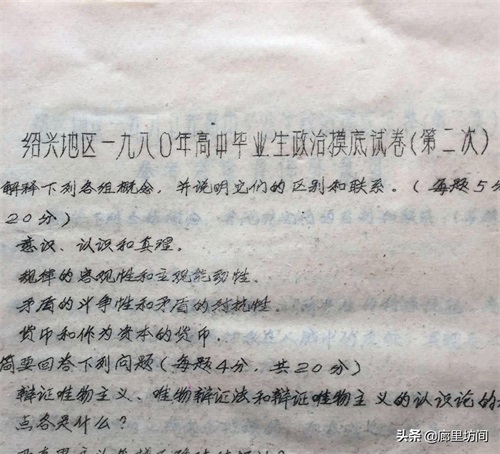 绍兴地区一九八〇年高中毕业生政治摸底试卷(第二次)
解释下列各组概念，并说明它们的区别和联系。(每题5分
20分)
意识、认识和真理。
规律的客观性和主观能动性、
矛盾的斗争性和矛盾的对抗性、
货币和作为资本的货币．
简要回答下列问题(每题4分，共20分)
辩证唯物主义、唯物辩证法和辩证唯物主义的认识论的
点各是什么？
头条 @廊里坊间